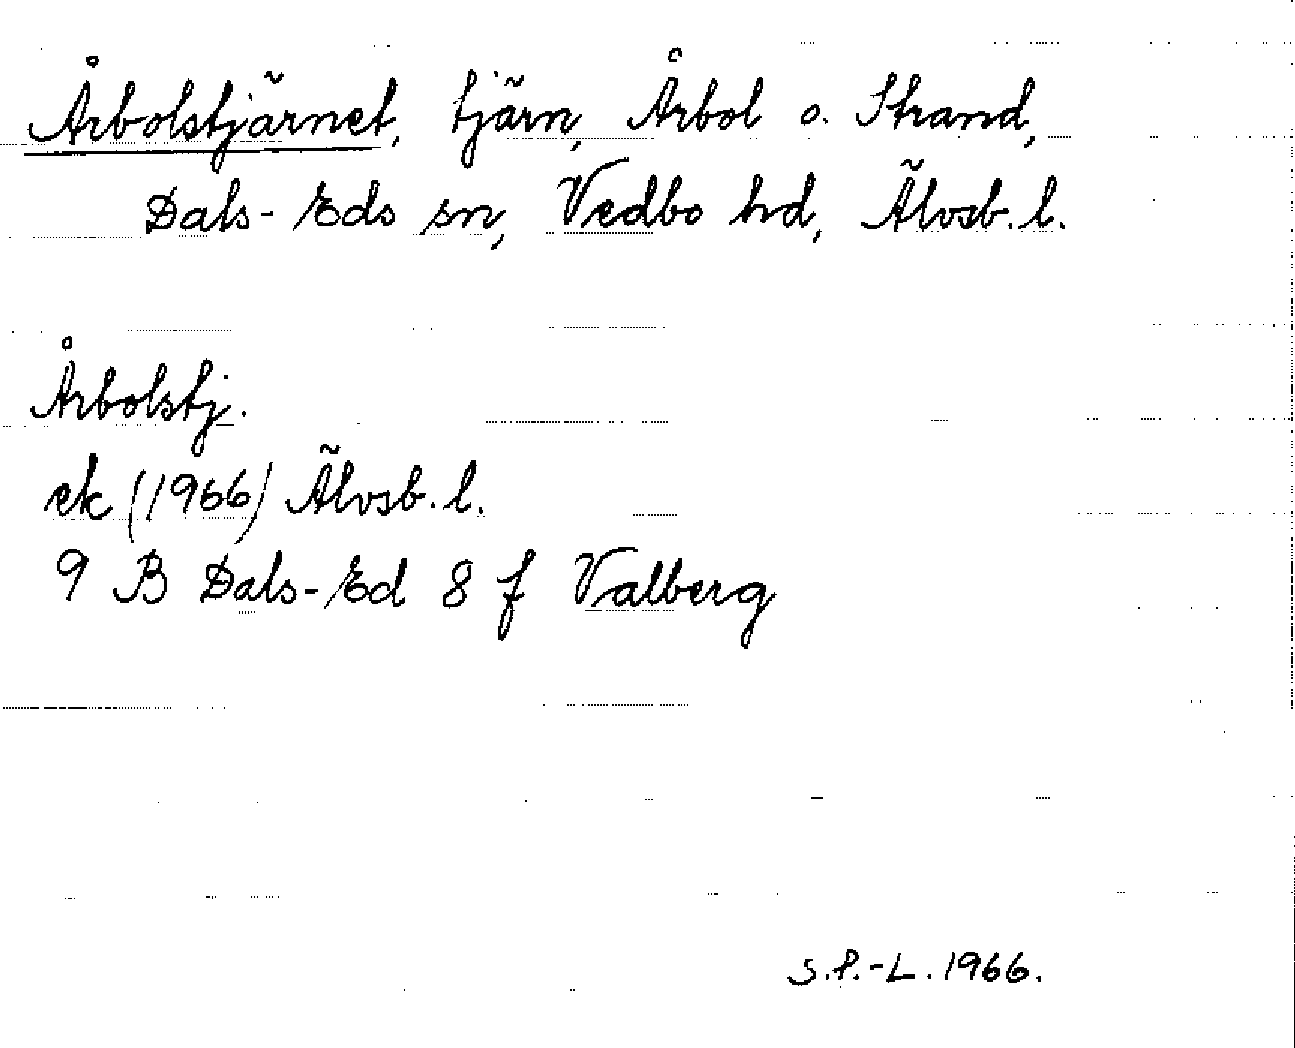 Årbolstjärnet, tjärn, Årbol o. Strand,
Dals-Eds sn, Vedbo hd, Älvsb. l.
Årbolstj.
ek (1966) Älvsb. l.
9 B Dals-Ed 8 f Valberg
S.P.-L. 1966.